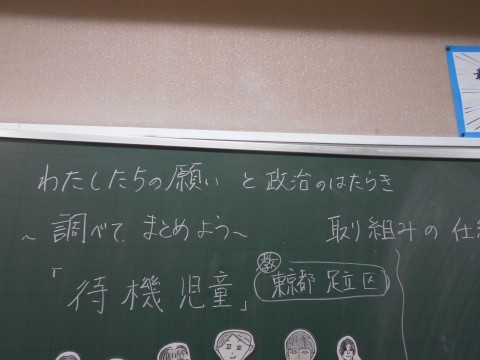 わたしたちの願いと政治のはたらき
～調べて、まとめよう～ 取り組みの仕
「待機児童」 教 東京都 足立区